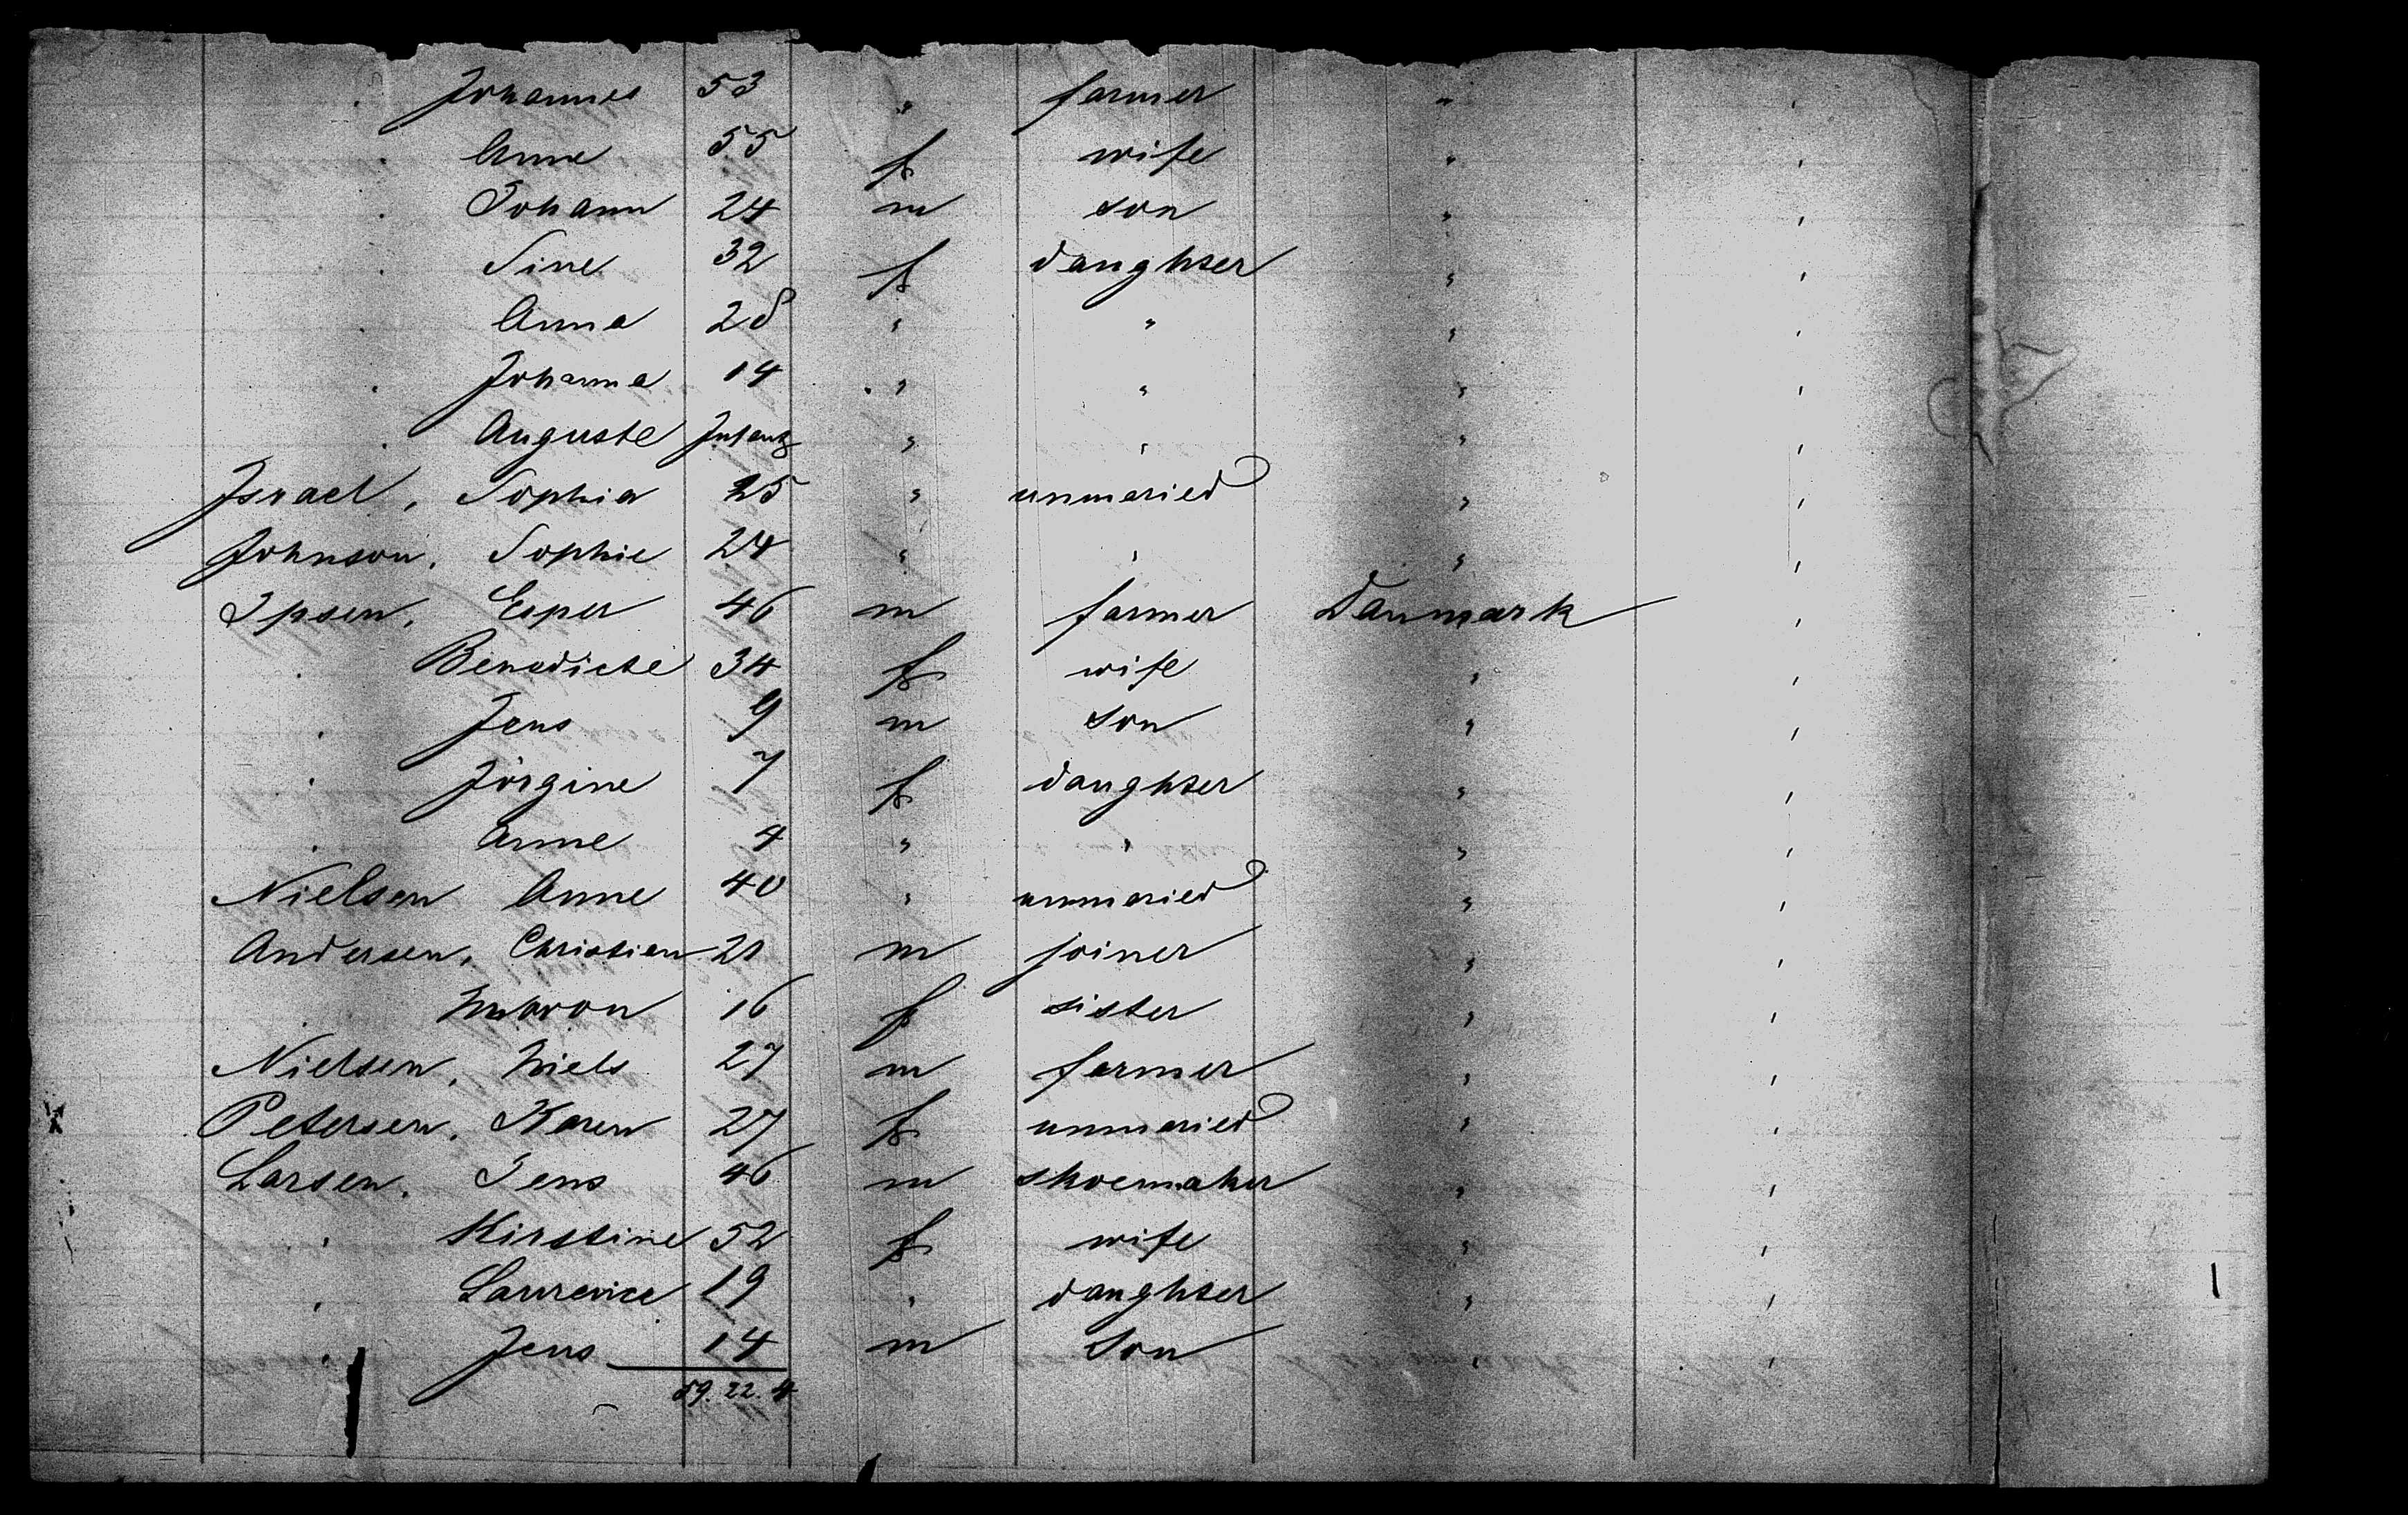 " Johannes 53 " farmer " "
" Anne 55 f wife " "
" Johann 24 m son " "
" Sine 32 f daughter " "
" Anna 28 " " " "
" Johanna 14 " " " "
" Auguste " " " "
Israel, Sophia 25 " unmaried " "
Johnson, Sophie 24 " " " "
Ipsen, Esper 46 m farmer Danmark "
" Benedicte 34 f wife " "
" Jens 9 m son " "
" Jörgine 7 f daughter " "
" Anne 4 " " " "
Nielsen Anne 40 " unmaried " "
Andersen, Christian 20 m joiner " "
" 16 f sister " "
Nielsen, Niels 27 m farmer " "
Petersen, Karen 27 f unmaried " "
Larsen, Jens 46 m shoemaker " "
" Kirstine 52 f wife " "
" 19 " daughter " "
" Jens 14 m son " "
59. 22. 4